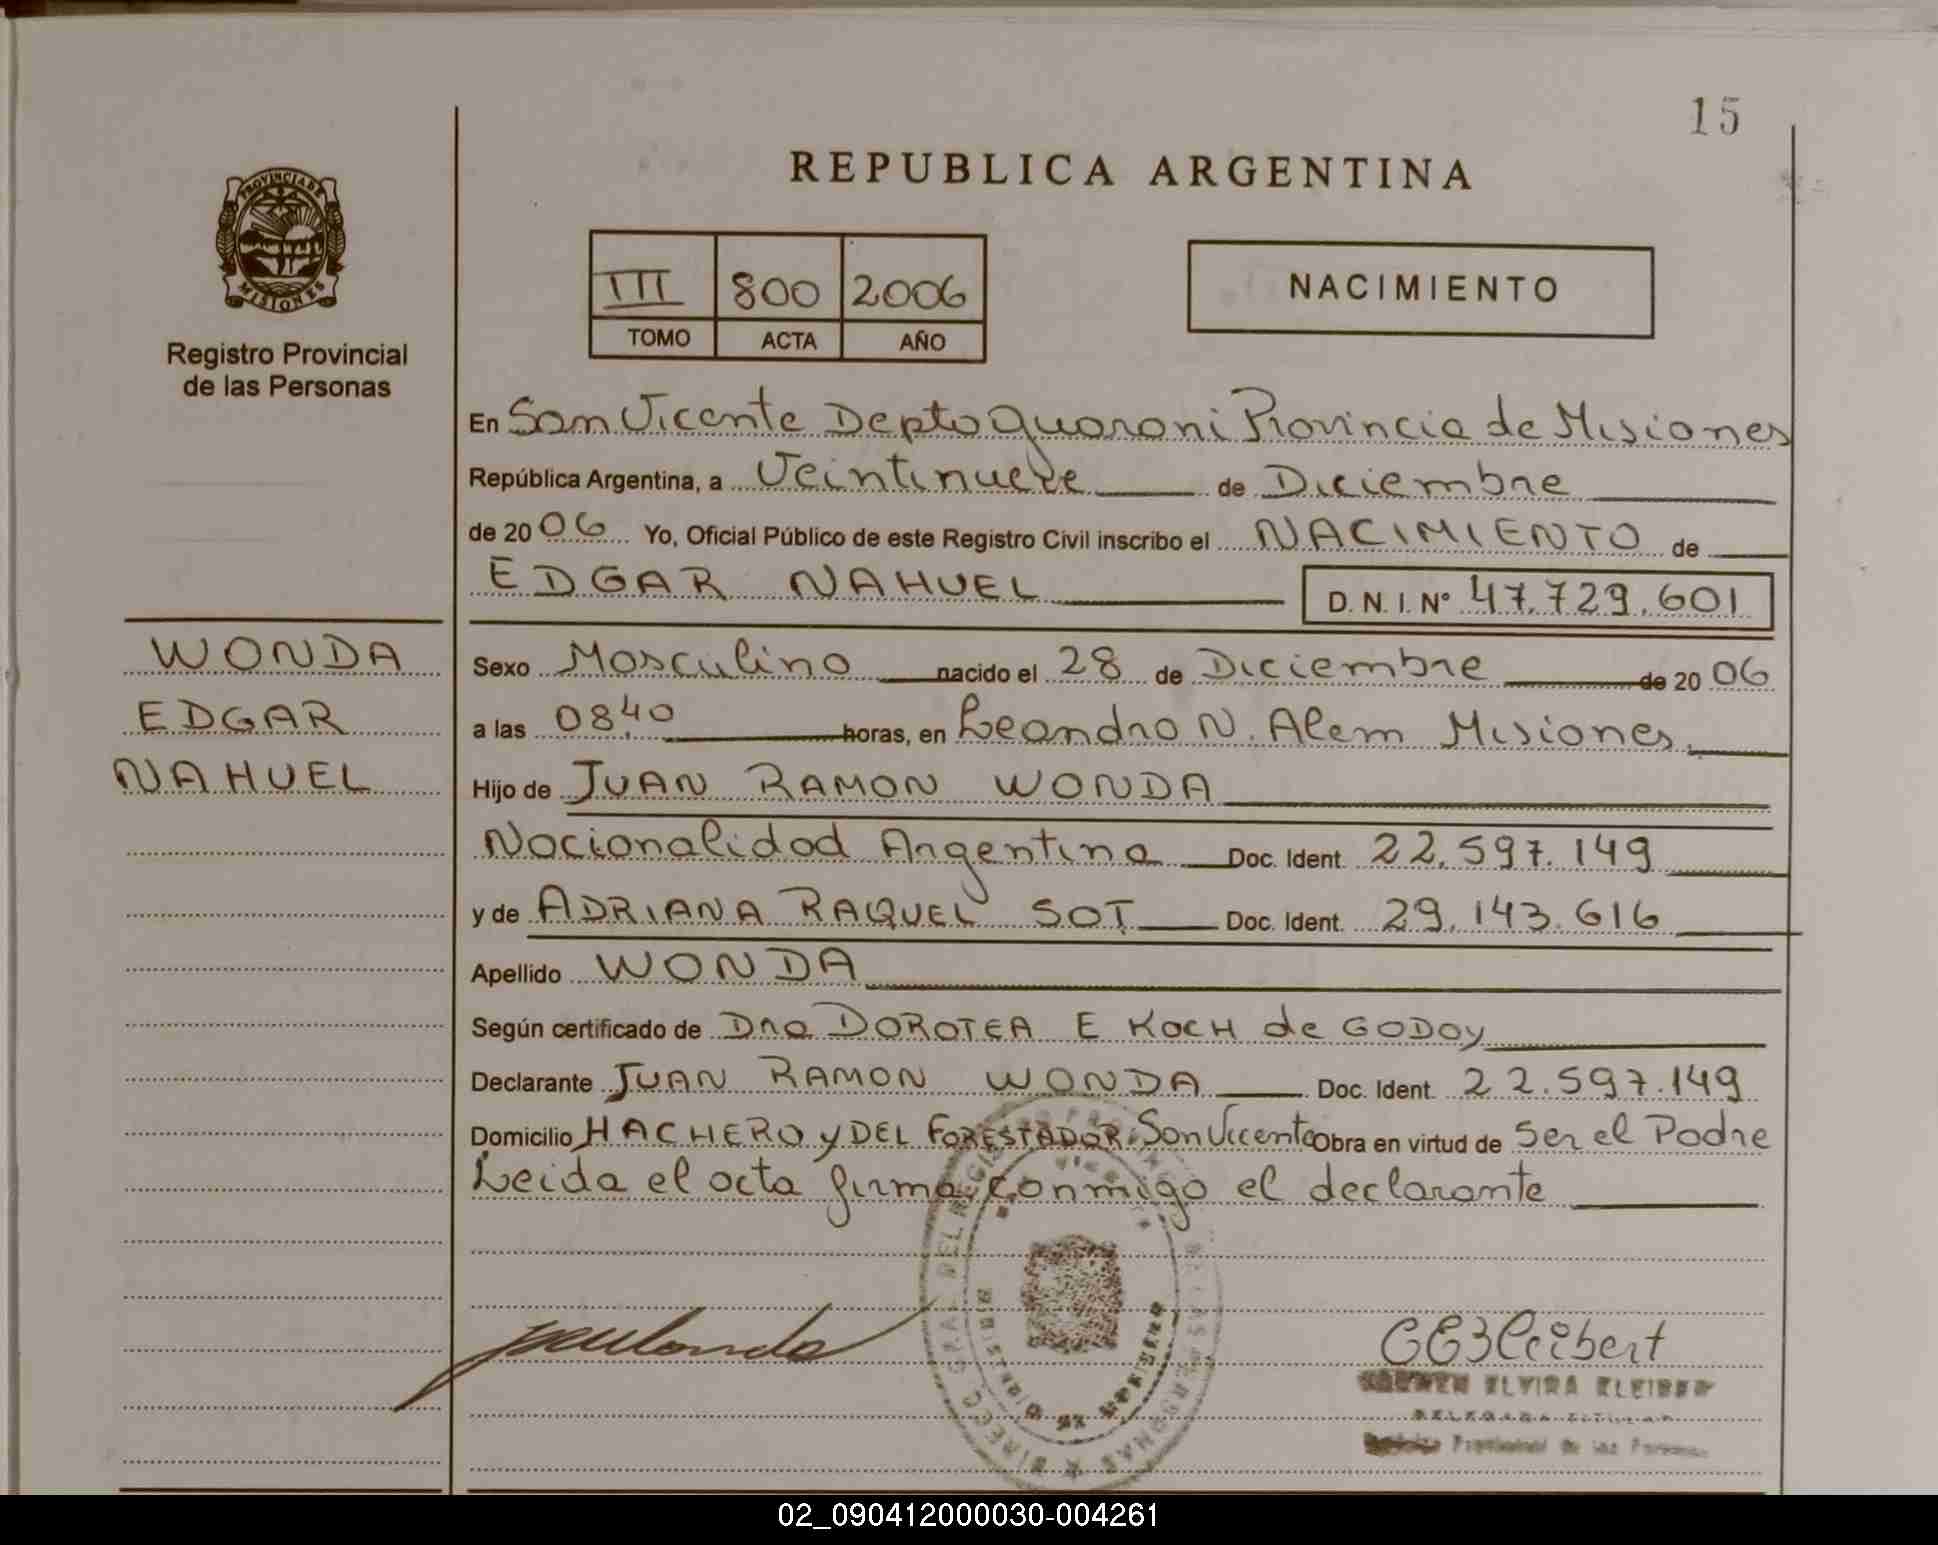 15
REPUBLICA ARGENTINA
PROVINCIA DE
MISIONES
Registro Provincial
de las Personas
III 800 2006
TOMO ACTA AÑO
NACIMIENTO
En San Vicente Depto Guarani Provincia de Misiones
República Argentina, a Veintinueve de Diciembre
de 2006 Yo, Oficial Público de este Registro Civil inscribo el NACIMIENTO de
EDGAR NAHUEL D. N. I. Nº 47.729.601
WONDA
EDGAR
NAHUEL
Sexo Masculino nacido el 28 de Diciembre de 2006
a las 08,40 horas, en Leandro N. Alem Misiones
Hijo de JUAN RAMON WONDA
Nacionalidad Argentina Doc. Ident. 22.597.149
y de ADRIANA RAQUEL SOT Doc. Ident. 29.143.616
Apellido WONDA
Según certificado de Dra DOROTEA E KOCH de GODOY
Declarante JUAN RAMON WONDA Doc. Ident. 22.597.149
Domicilio HACHERO y DEL FORESTADOR San Vicente Obra en virtud de Ser el Padre
Leida el acta firma conmigo el declarante
CEKleibert
ELVIRA
Provincial de las Personas
02_090412000030-004261